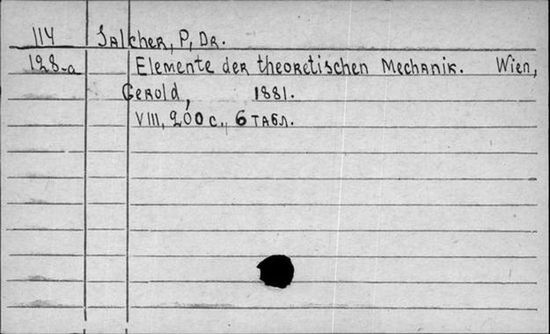 114 Salcher, P, Dr.
128-a Elemente der theoretischen Mechanik. Wien,
Gerold, 1881.
VIII, 200 с., 6 табл.